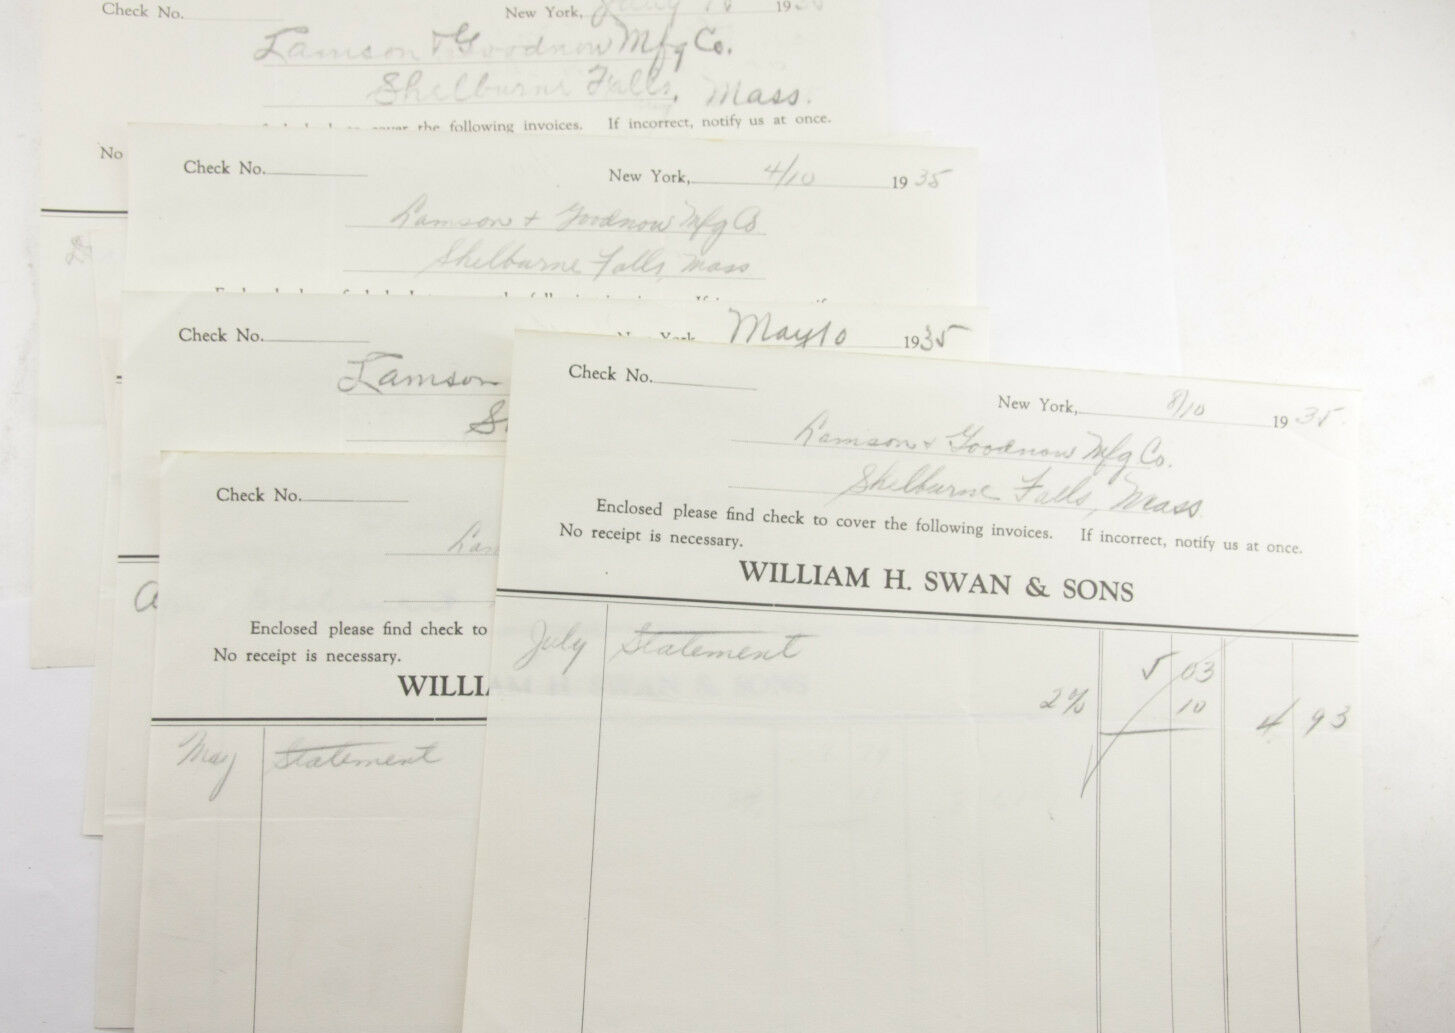 Check No.
New York, 19
Lamson & Goodnow Mfg Co.
Shelburne Falls, Mass.
cover the following invoices. If incorrect, notify us at once.
No
Check No.
New York, 4/10 1935
Lamson & Goodnow Mfg Co
Shelburne Falls, Mass
Check No.
New York May 10 1935
Lamson
Check No.
Enclosed please find check to
No receipt is necessary.
WILLI
May Statement
Check No.
New York, 8/10 1935
Lamson & Goodnow Mfg Co.
Shelburne Falls, Mass.
Enclosed please find check to cover the following invoices. If incorrect, notify us at once.
No receipt is necessary.
WILLIAM H. SWAN & SONS
July Statement 5 03
2% 10 4 93